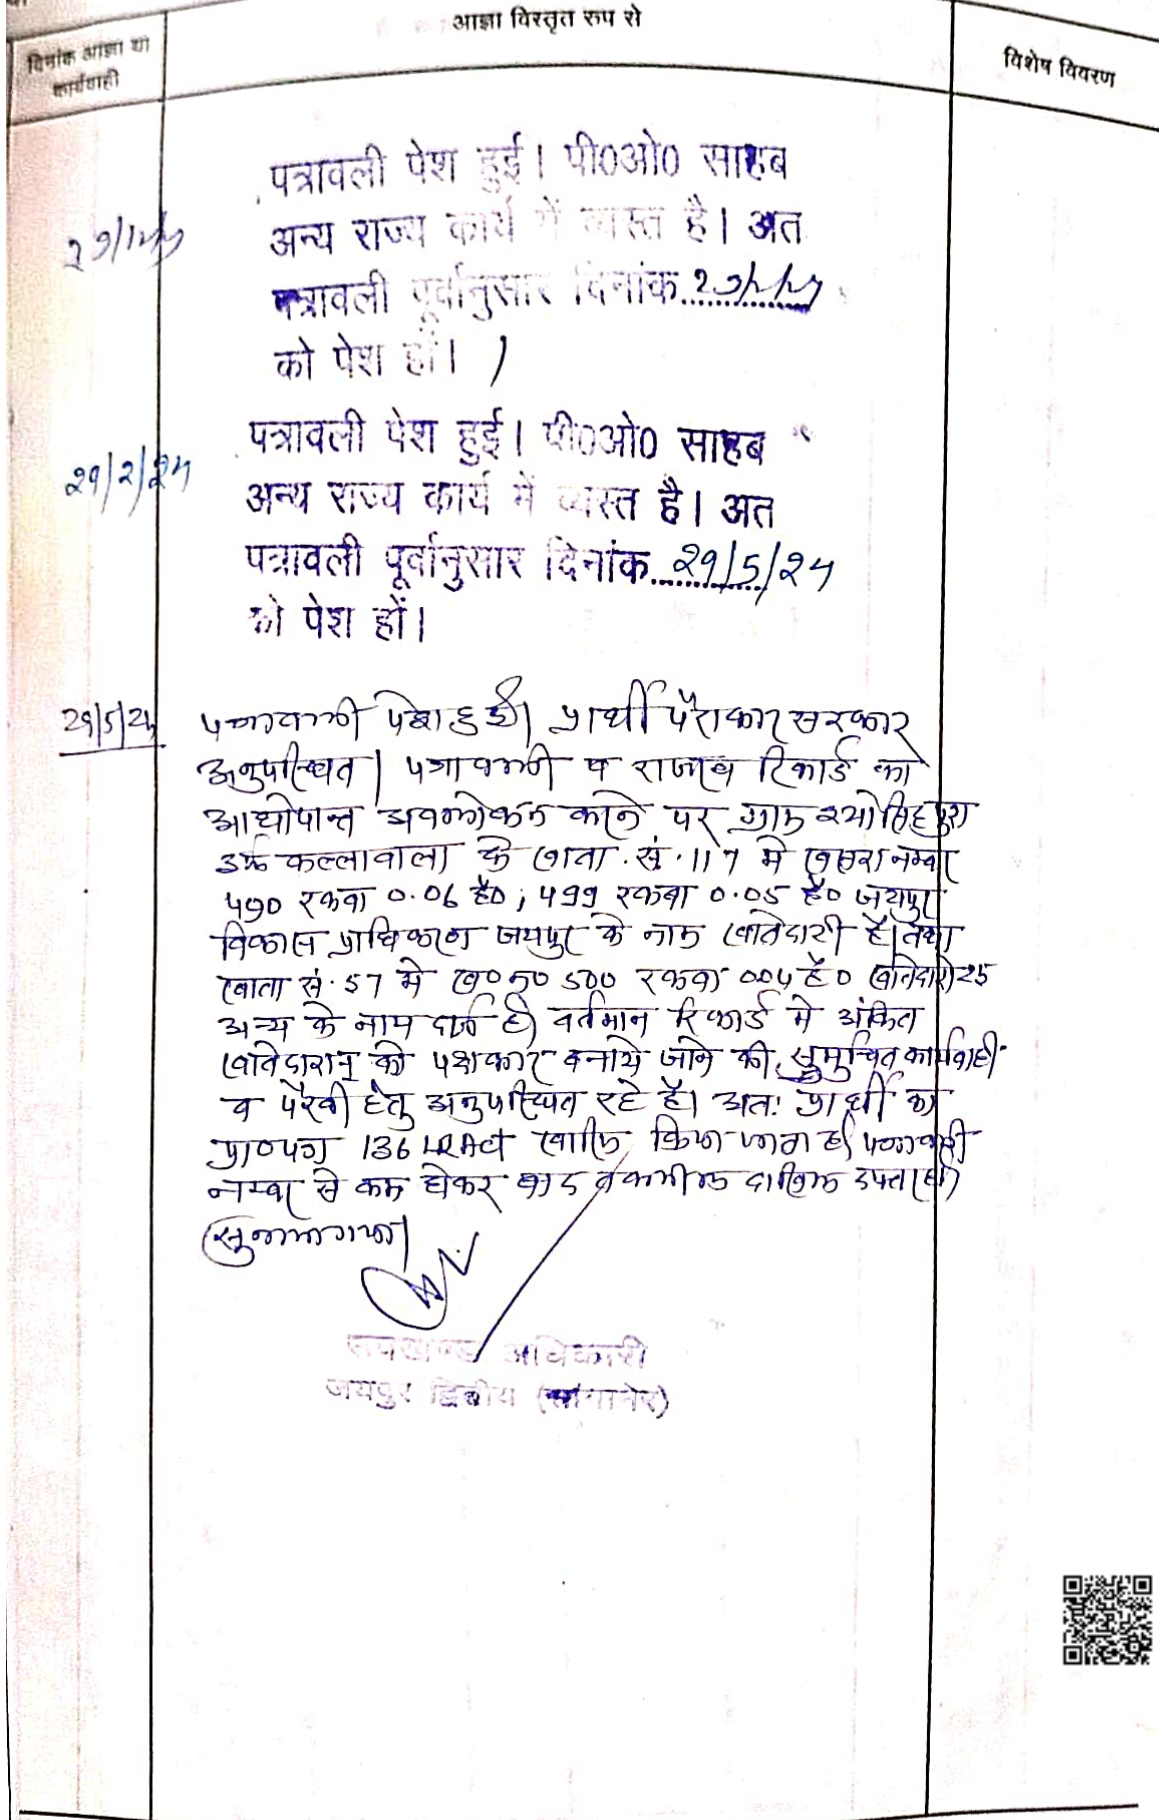 आज्ञा विस्तृत रुप से
दिनांक आज्ञा या
कार्यवाही
विशेष विवरण
पत्रावली पेश हुई। पी0ओ0 साहब
अन्य राज्य कार्य में व्यस्त है। अत
पत्रावली पूर्वानुसार दिनांक
को पेश हों।
29/2/24
पत्रावली पेश हुई। पी0ओ0 साहब
अन्य राज्य कार्य में व्यस्त है। अत
पत्रावली पूर्वानुसार दिनांक...29/5/24
को पेश हों।
29/5/24
पत्रावली पेश हुई। प्रार्थी पैरोकार सरकार
अनुपस्थित। पत्रावली व राजस्व रिकार्ड का
आद्योपान्त अवलोकन करने पर ग्राम श्योसिंहपुरा
उर्फ कल्लावाला के खाता सं. 117 मे खसरा नम्बर
490 रकबा 0.06 है0, 499 रकबा 0.05 है0 जयपुर
विकास प्राधिकरण जयपुर के नाम खातेदारी है। तथा
खाता सं. 57 मे ख0 न0 500 रकबा 004 है0 खातेदारी
अन्य के नाम दर्ज है। वर्तमान रिकार्ड मे अंकित
खातेदारान् को पक्षकार बनाये जाने की समुचित कार्यवाही
व पैरवी हेतु अनुपस्थित रहे है। अतः प्रार्थी का
प्रा0पत्र 136 LR Act खारिज किया जाता है। पत्रावली
नम्बर से कम होकर बाद तकमील दाखिल दफ्तर हो।
सुनाया गया।
उपखण्ड अधिकारी
जयपुर द्वितीय (सांगानेर)